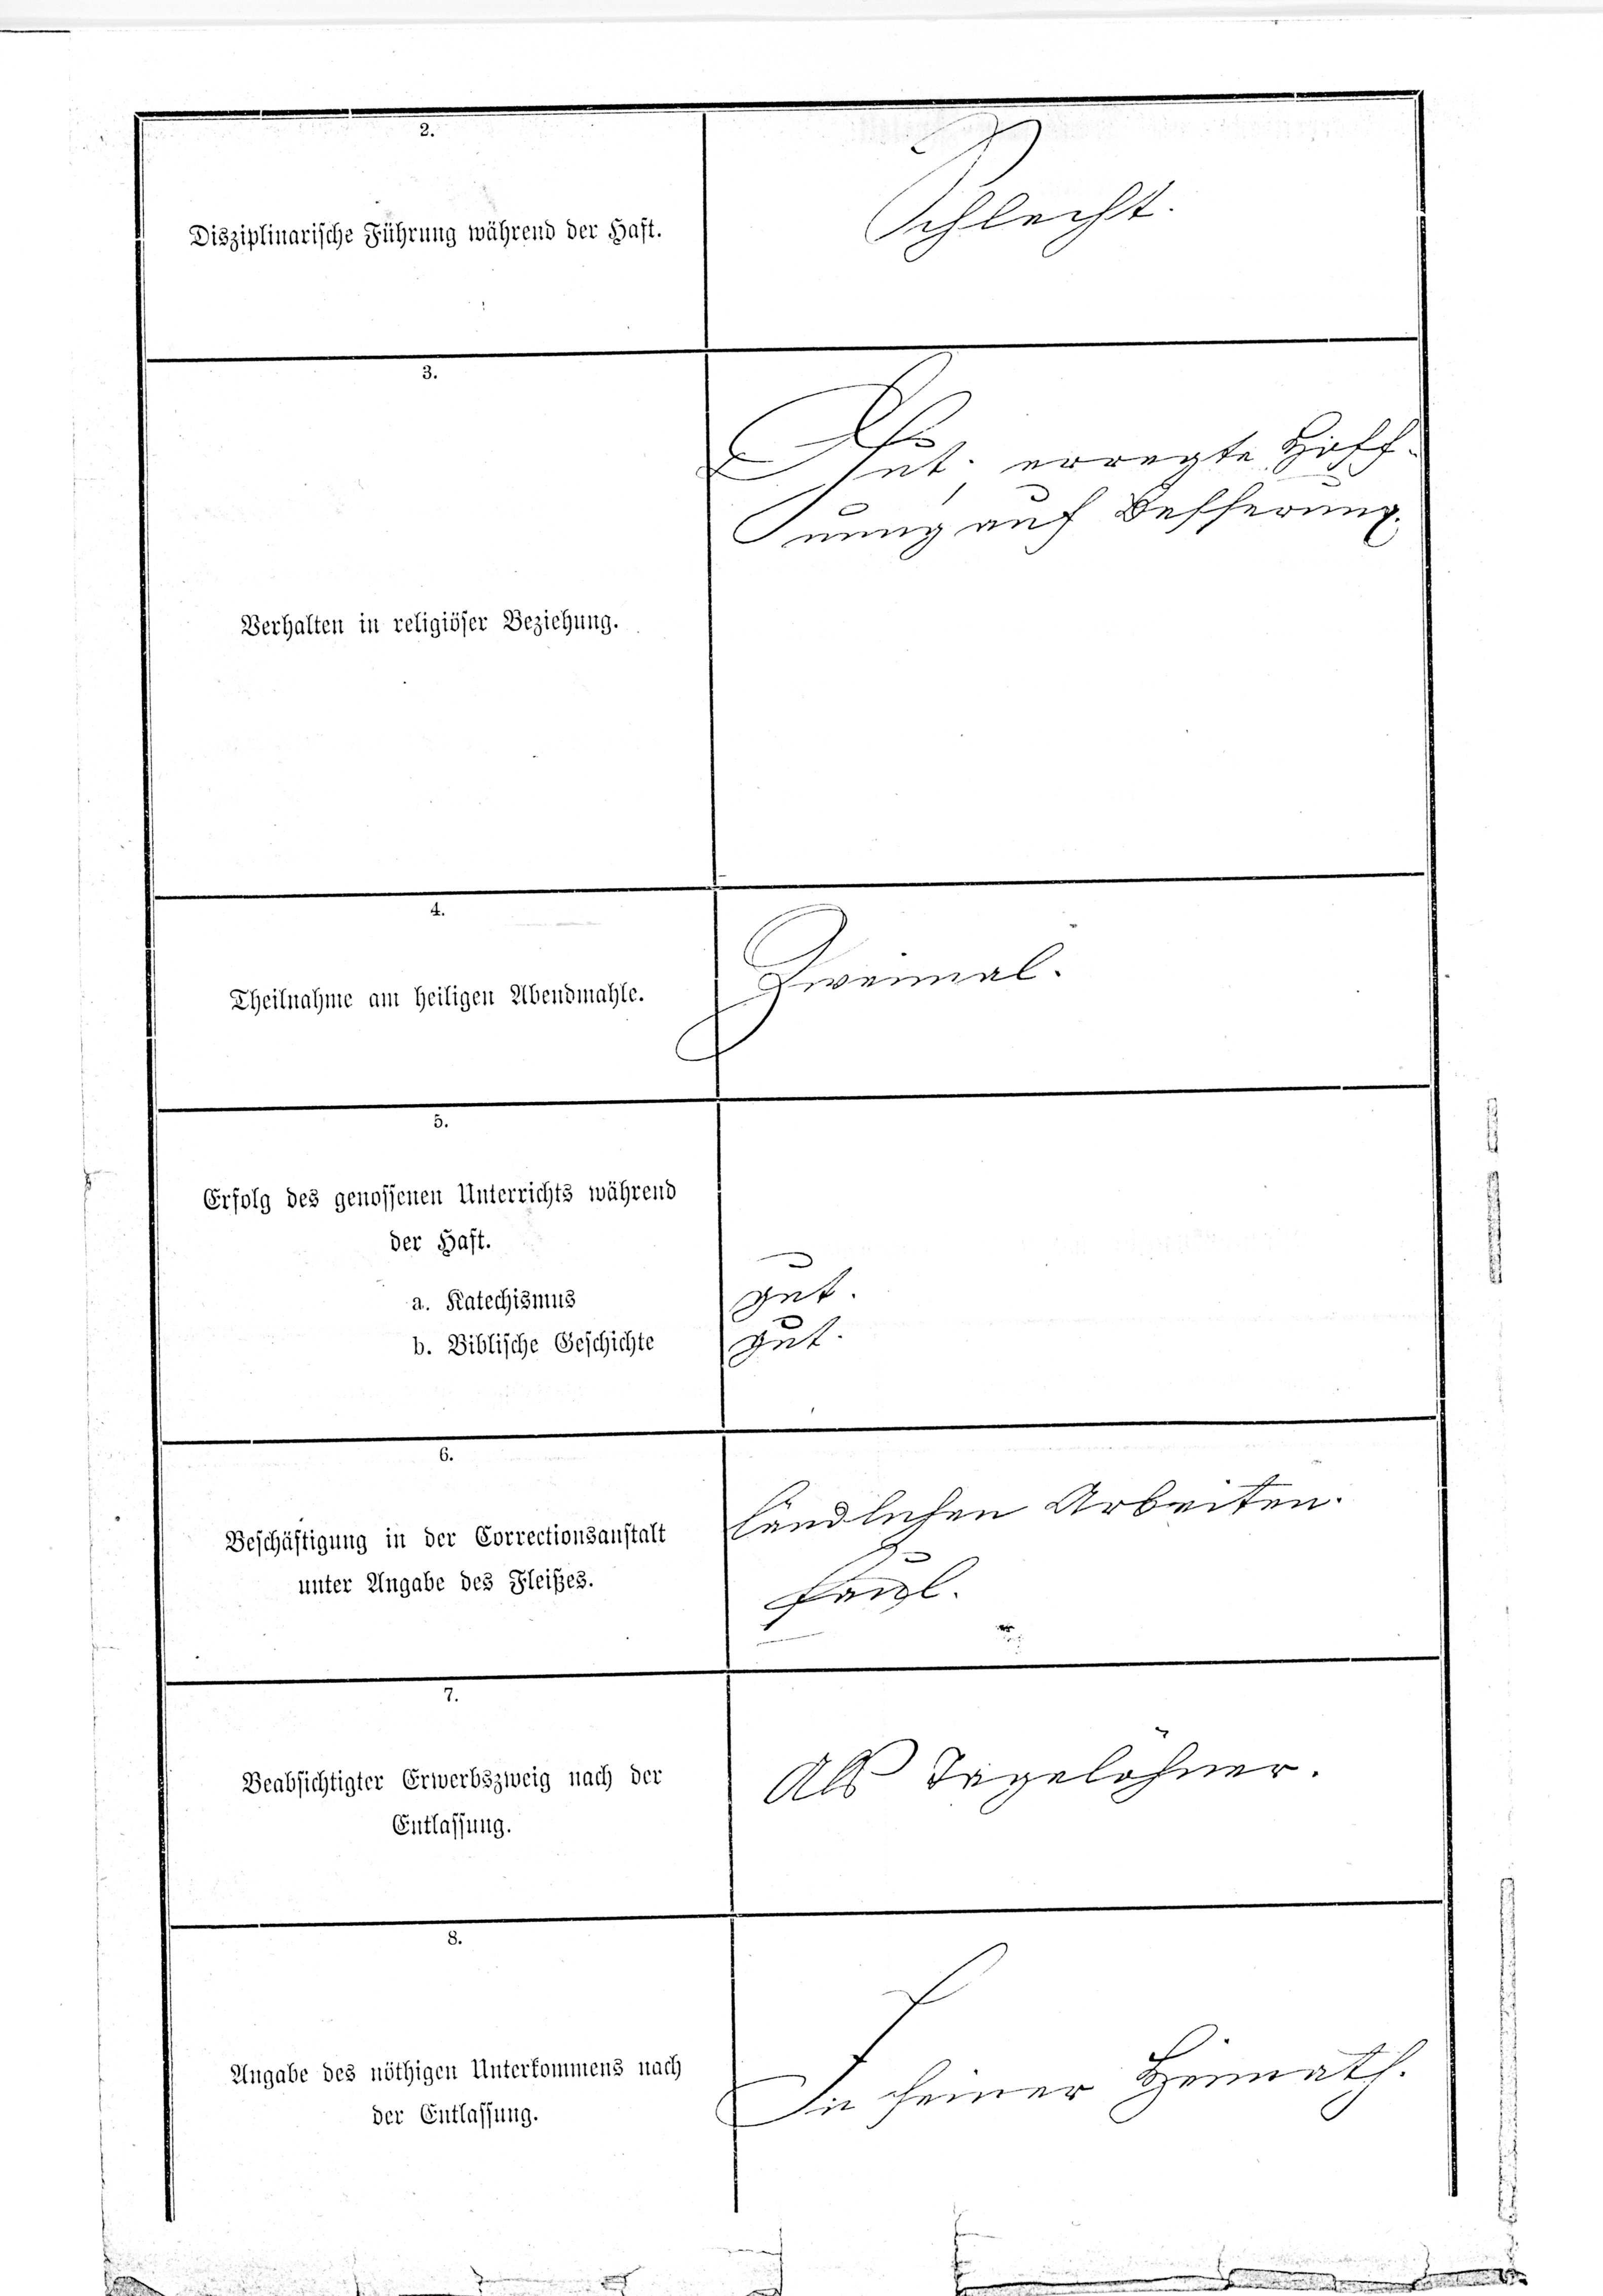 2.
Disziplinarische Führung während der Haft.
Schlecht.
3.
Verhalten in religiöser Beziehung.
Gut, erregte Hoff-
nung auf Besserung.
4.
Theilnahme am heiligen Abendmahle.
Zweimal.
5.
Erfolg des genossenen Unterrichts während
der Haft.
a. Katechismus
gut.
b. Biblische Geschichte
gut.
6.
Beschäftigung in der Correctionsanstalt
unter Angabe des Fleißes.
ländlichen Arbeiten.
faul.
7.
Beabsichtigter Erwerbszweig nach der
Entlassung.
Als Tagelöhner.
8.
Angabe des nöthigen Unterkommens nach
der Entlassung.
In seiner Heimath.